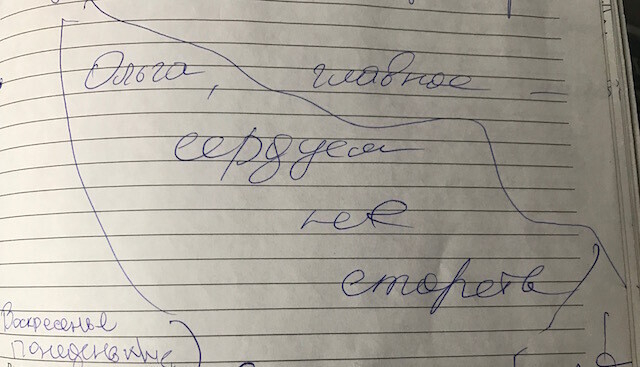 Ольга, главное –
сердцем
не
стареть
Воскресенье
понедельник